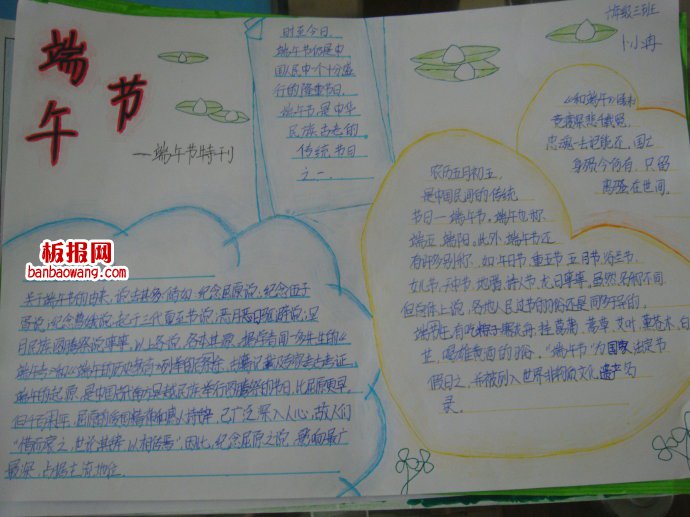 端午节
——端午节特刊
时至今日,
端午节仍是中
国人民中一个十分盛
行的隆重节日.
端午节是中华
民族古老的
传统节日
之一.
六年级三班
卜冉
《和端午》
竞渡深悲千载冤,
忠魂一去讵能还.国亡
身殒今何有,只留
离骚在世间.
农历五月初五,
是中国民间的传统
节日——端午节.端午也称
端五,端阳.此外,端午节还
有许多别称,如:午日节、重五节、五月节、浴兰节、
女儿节、天中节、地腊、诗人节、龙日等等.虽然名称不同,
但总体上说,各地人民过节的习俗还是同多于异的.
端午节,有吃粽子,赛龙舟,挂菖蒲、蒿草、艾叶,薰苍术、白
芷,喝雄黄酒的习俗."端午节"为国家法定节
假日之一,并被列入世界非物质文化遗产名
录.
板报网
banbaowang.com
关于端午节的由来,说法甚多,诸如:纪念屈原说;纪念伍子
胥说;纪念曹娥说;起于三代夏至节说;恶月恶日驱避说;吴
月民族图腾祭说等等.以上各说,各本其源.据学者闻一多先生的《
端午考》和《端午的历史教育》列举的百余条古籍记载及专家考古考证,
端午的起源,是中国古代南方吴越民族举行图腾祭的节日,比屈原更早.
但千百年来,屈原的爱国精神和感人诗辞,已广泛深入人心,故人们
"惜而哀之,世论其辞,以相传焉".因此,纪念屈原之说,影响最广
最深,占据主流地位.